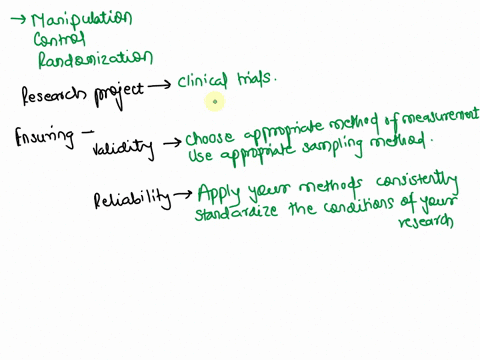 → Manipulation
Control
Randomization
Research project → Clinical trials.
Ensuring - Validity → Choose appropriate method of measurement
Use appropriate sampling method.
Reliability → Apply your methods consistently
standardize the conditions of your
research